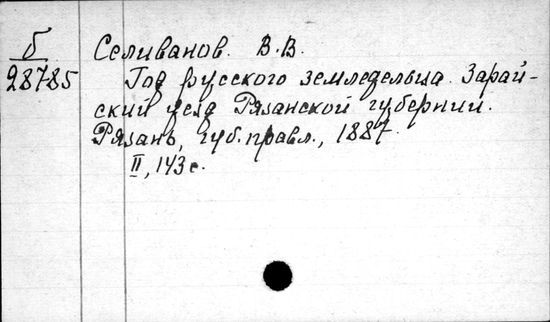 б
28785
Селиванов. В.В.
Год русского земледельца. Зарай-
ский уезд Рязанской губернии.
Рязань, губ. правл., 1887.
II, 143 с.